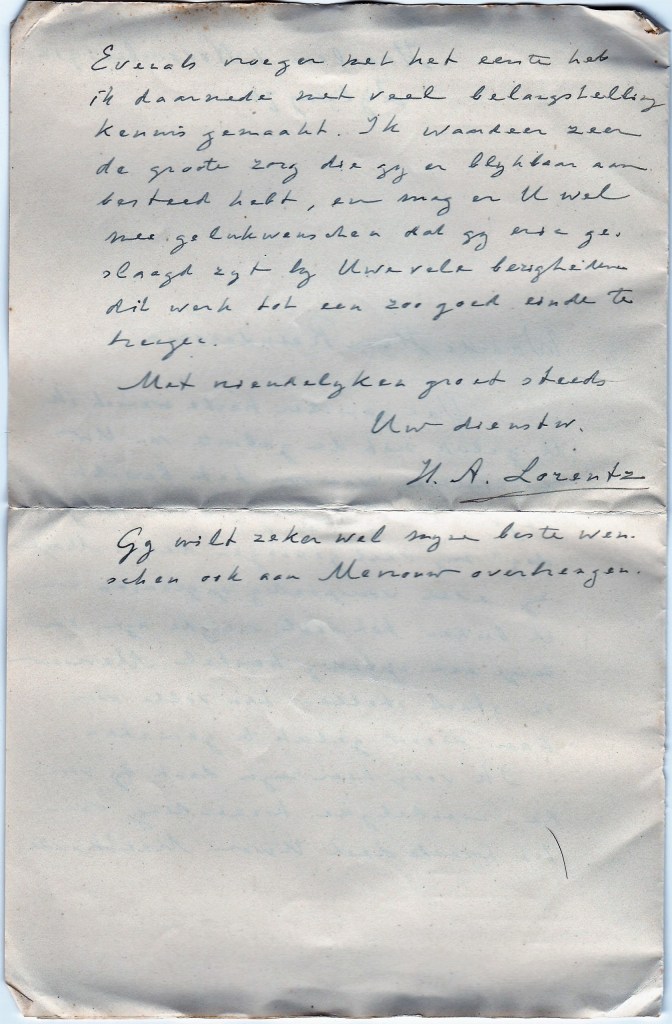 Evenals vroeger met het eerste heb
ik daarmede met veel belangstelling
kennis gemaakt. Ik waardeer zeer
de groote zorg die gy er blykbaar aan
besteed hebt, en mag er U wel
mee gelukwenschen dat gy erin ge-
slaagd zyt by Uwe vele bezigheden
dit werk tot een zoo goed einde te
brengen.
Met vriendelyken groet steeds
Uw dienstw.
H. A. Lorentz
Gy wilt zeker wel myne beste wen-
schen ook aan Mevrouw overbrengen.